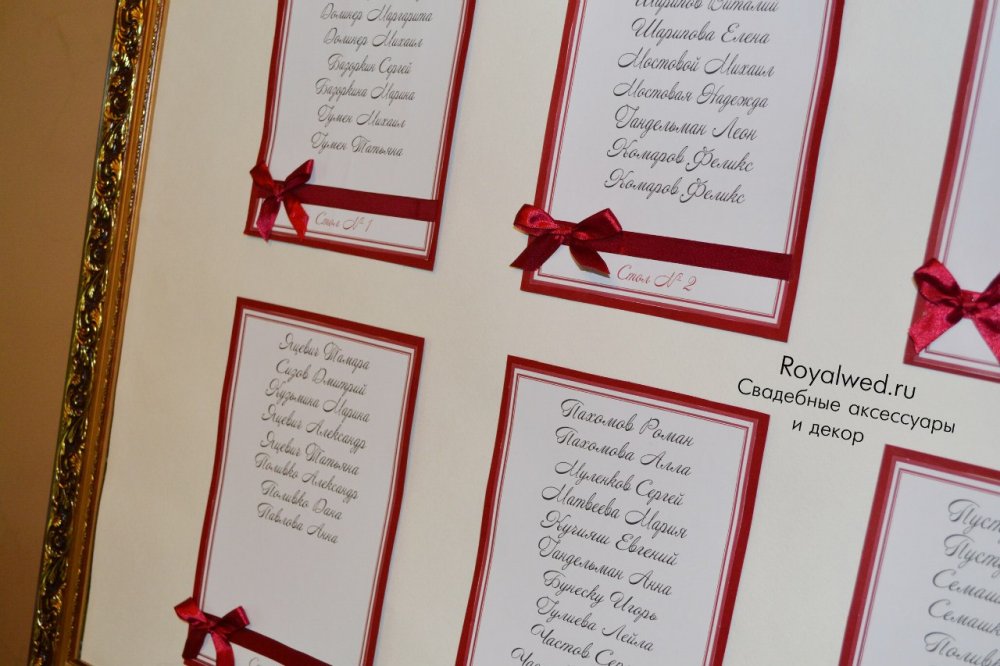 Долинер Маргарита
Долинер Михаил
Базоркин Сергей
Базоркина Марина
Гумен Михаил
Гумен Татьяна
Стол № 1
Шарипов Виталий
Шарипова Елена
Мостовой Михаил
Мостовая Надежда
Гандельман Леон
Комаров Феликс
Комаров Феликс
Стол № 2
Яцевич Тамара
Сизов Дмитрий
Кузьмина Марина
Яцевич Александр
Яцевич Татьяна
Поливко Александр
Поливко Дана
Павлова Анна
Пахомов Роман
Пахомова Алла
Муленков Сергей
Матвеева Мария
Кучияш Евгений
Гандельман Анна
Бунеску Игорь
Гулиева Лейла
Частов
Royalwed.ru
Свадебные аксессуары
и декор